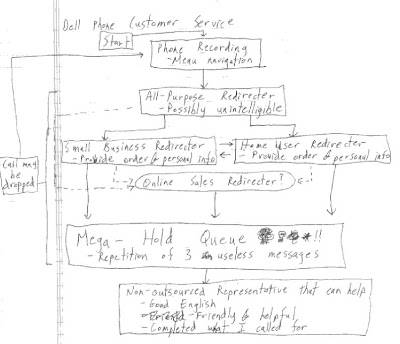 Dell Phone Customer Service
Start
Phone Recording
- Menu navigation
All-Purpose Redirecter
- Possibly unintelligible
Small Business Redirecter
- Provide order & personal info
Home User Redirecter
- Provide order & personal info
Call may
be
dropped
Online Sales Redirecter?
Mega-Hold Queue !!
- Repetition of 3 useless messages
Non-outsourced Representative that can help
- Good English
- Friendly & helpful
- Completed what I called for